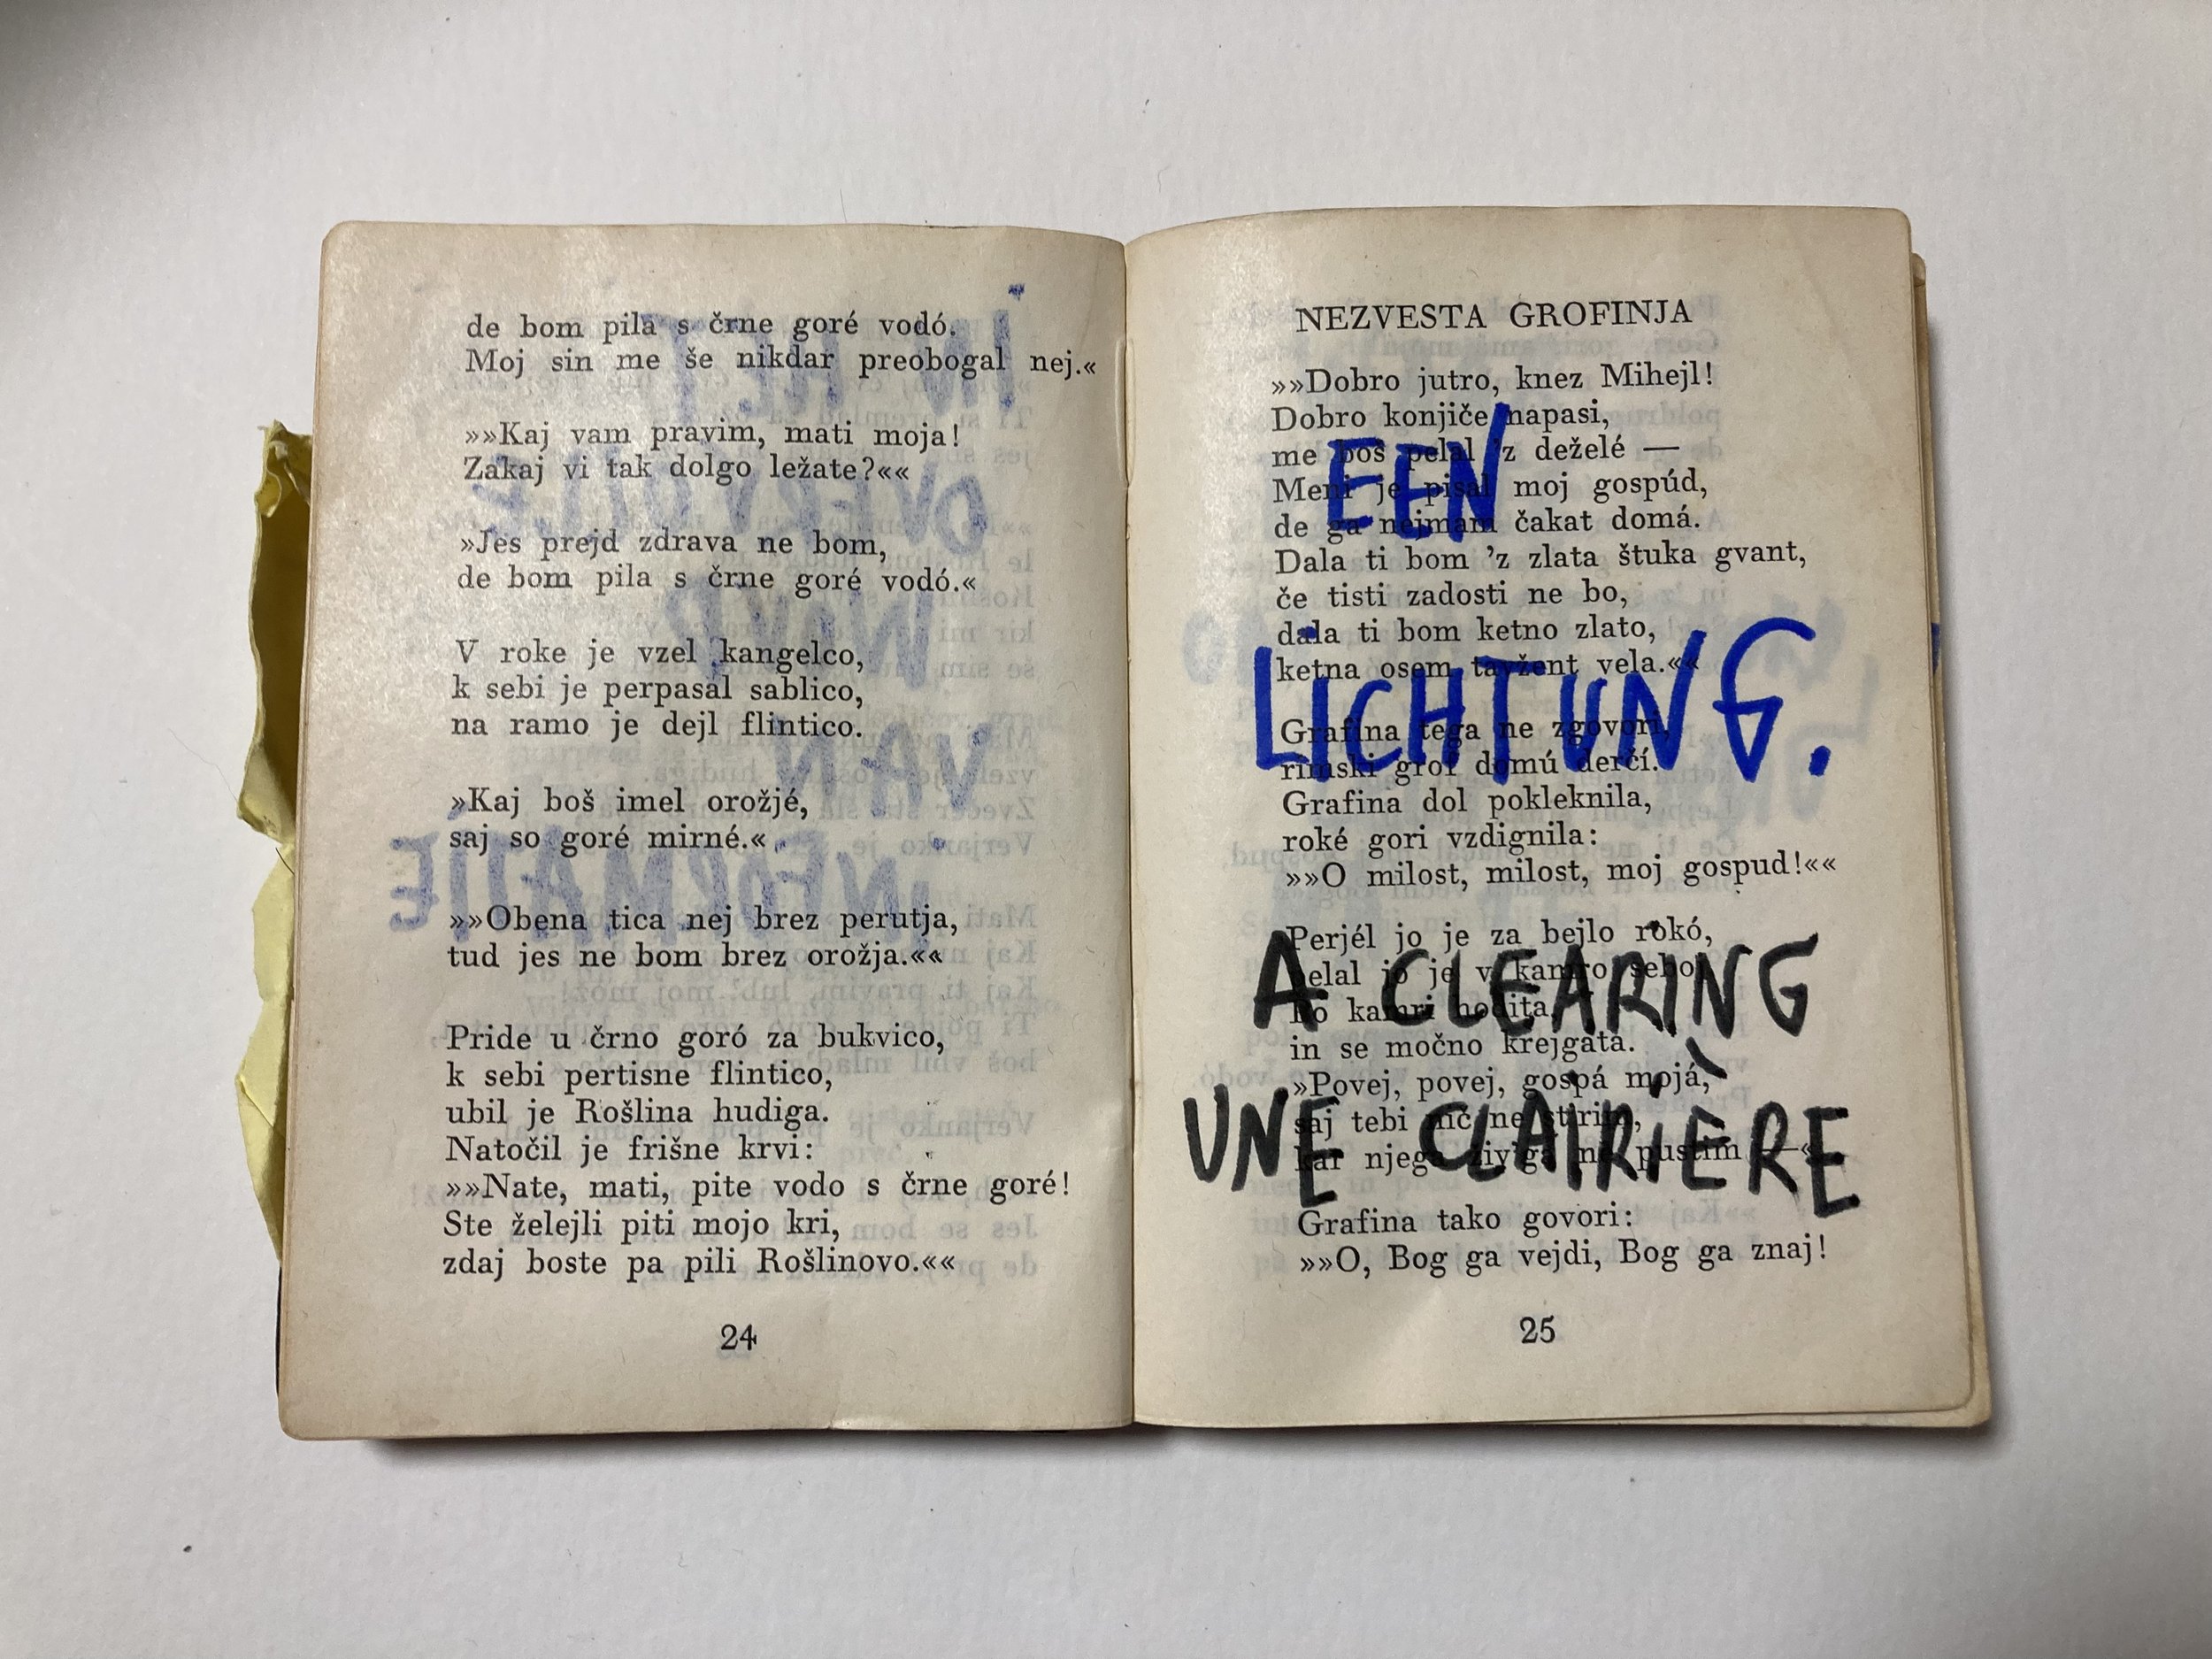 de bom pila s črne goré vodó.
Moj sin me še nikdar preobogal nej.«
»»Kaj vam pravim, mati moja!
Zakaj vi tak dolgo ležate?««
»Jes prejd zdrava ne bom,
de bom pila s črne goré vodó.«
V roke je vzel kangelco,
k sebi je perpasal sablico,
na ramo je dejl flintico.
»Kaj boš imel orožjé,
saj so goré mirné.«
»»Obena tica nej brez perutja,
tud jes ne bom brez orožja.««
Pride u črno goró za bukvico,
k sebi pertisne flintico,
ubil je Rošlina hudiga.
Natočil je frišne krvi:
»»Nate, mati, pite vodo s črne goré!
Ste želejli piti mojo kri,
zdaj boste pa pili Rošlinovo.««
24
NEZVESTA GROFINJA
»»Dobro jutro, knez Mihejl!
Dobro konjiče napasi,
me boš pelal 'z deželé —
Meni je pisal moj gospúd,
de ga nejmam čakat domá.
Dala ti bom 'z zlata štuka gvant,
če tisti zadosti ne bo,
dala ti bom ketno zlato,
ketna osem tavžent vela.««
Grafina tega ne zgovori,
rimski grof domú derčí.
Grafina dol pokleknila,
roké gori vzdignila:
»»O milost, milost, moj gospud!««
Perjél jo je za bejlo rokó,
pelal jo je v kamro sebo,
Po kamri hodita,
in se močno krejgata.
»Povej, povej, gospá mojá,
saj tebi nič ne strim,
kar njega živga ne pustim —«
Grafina tako govori:
»»O, Bog ga vejdi, Bog ga znaj!
25
EEN
LICHTUNG.
A CLEARING
UNE CLAIRIÈRE
IN HET
OVERVOLLE
WOUD
VAN
INFORMATIE